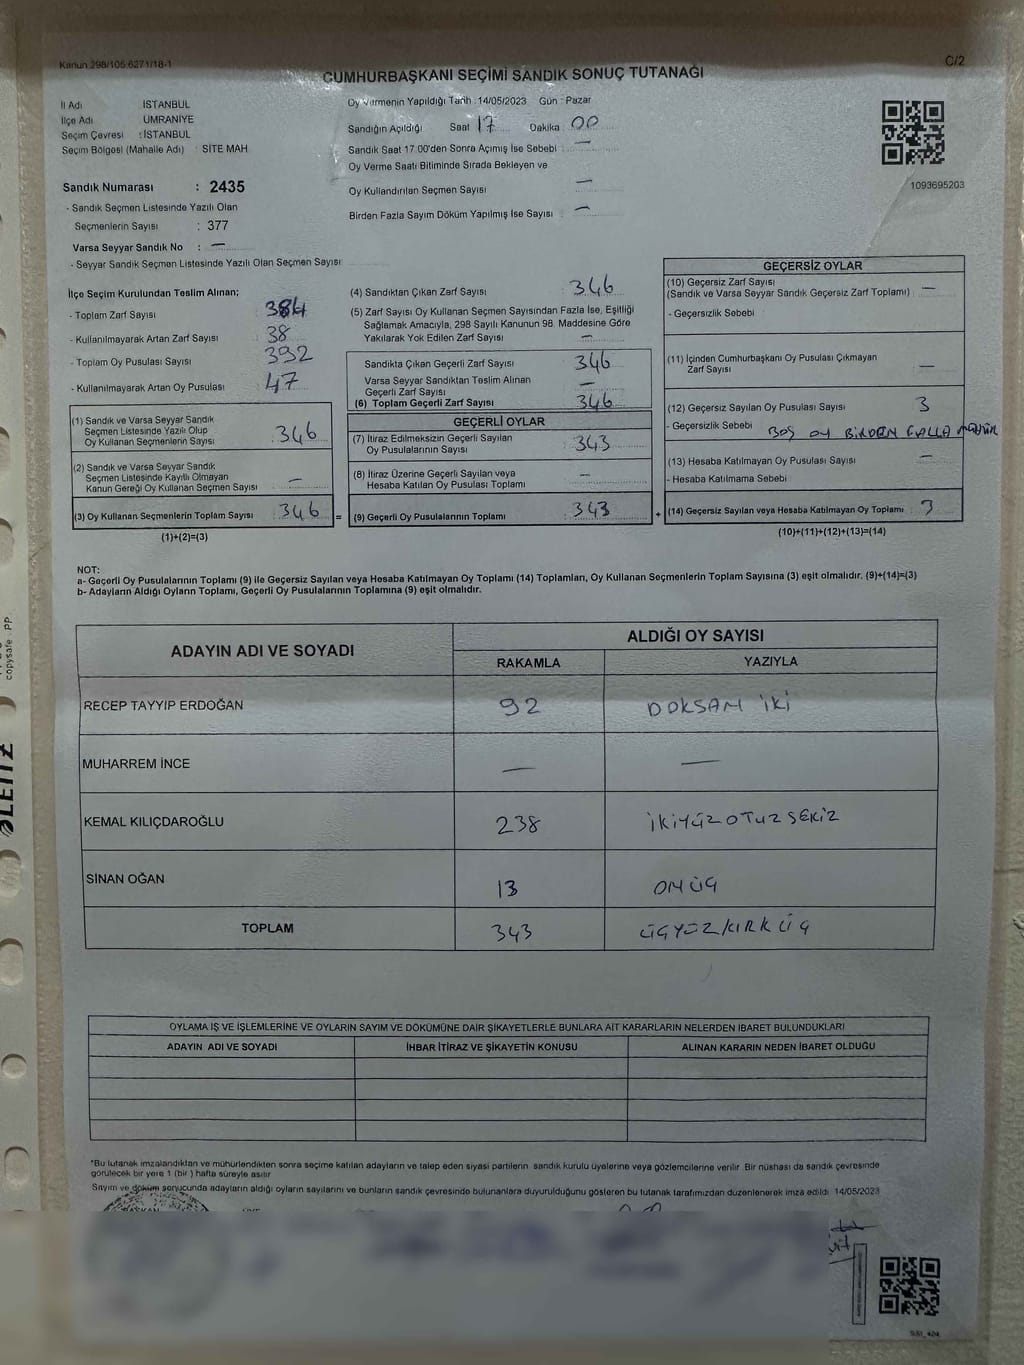 Kanun 298/105 6271/18-1
C/2
CUMHURBAŞKANI SEÇİMİ SANDIK SONUÇ TUTANAĞI
İl Adı İSTANBUL
İlçe Adı ÜMRANİYE
Seçim Çevresi : İSTANBUL
Seçim Bölgesi (Mahalle Adı) : SİTE MAH
Sandık Numarası : 2435
- Sandık Seçmen Listesinde Yazılı Olan
Seçmenlerin Sayısı : 377
Varsa Seyyar Sandık No : —
- Seyyar Sandık Seçmen Listesinde Yazılı Olan Seçmen Sayısı
Oy Vermenin Yapıldığı Tarih : 14/05/2023 Gün : Pazar
Sandığın Açıldığı Saat 17 Dakika 00
Sandık Saat 17:00'den Sonra Açımış İse Sebebi : —
Oy Verme Saati Bitiminde Sırada Bekleyen ve
Oy Kullandırılan Seçmen Sayısı —
Birden Fazla Sayım Döküm Yapılmış İse Sayısı : —
1093695203
İlçe Seçim Kurulundan Teslim Alınan;
- Toplam Zarf Sayısı 384
- Kullanılmayarak Artan Zarf Sayısı 38
- Toplam Oy Pusulası Sayısı 392
- Kullanılmayarak Artan Oy Pusulası 47
(1) Sandık ve Varsa Seyyar Sandık
Seçmen Listesinde Yazılı Olup
Oy Kullanan Seçmenlerin Sayısı 346
(2) Sandık ve Varsa Seyyar Sandık
Seçmen Listesinde Kayıtlı Olmayan
Kanun Gereği Oy Kullanan Seçmen Sayısı —
(3) Oy Kullanan Seçmenlerin Toplam Sayısı 346
(1)+(2)=(3)
=
(4) Sandıktan Çıkan Zarf Sayısı 346
(5) Zarf Sayısı Oy Kullanan Seçmen Sayısından Fazla İse, Eşitliği
Sağlamak Amacıyla, 298 Sayılı Kanunun 98. Maddesine Göre
Yakılarak Yok Edilen Zarf Sayısı —
Sandıkta Çıkan Geçerli Zarf Sayısı 346
Varsa Seyyar Sandıktan Teslim Alınan
Geçerli Zarf Sayısı —
(6) Toplam Geçerli Zarf Sayısı 346
GEÇERLİ OYLAR
(7) İtiraz Edilmeksizin Geçerli Sayılan
Oy Pusulalarının Sayısı 343
(8) İtiraz Üzerine Geçerli Sayılan veya
Hesaba Katılan Oy Pusulası Toplamı —
(9) Geçerli Oy Pusulalarının Toplamı 343
+
GEÇERSİZ OYLAR
(10) Geçersiz Zarf Sayısı
(Sandık ve Varsa Seyyar Sandık Geçersiz Zarf Toplamı) : —
- Geçersizlik Sebebi
(11) İçinden Cumhurbaşkanı Oy Pusulası Çıkmayan
Zarf Sayısı —
(12) Geçersiz Sayılan Oy Pusulası Sayısı 3
- Geçersizlik Sebebi BOŞ OY BİRDEN FAZLA MÜHÜR
(13) Hesaba Katılmayan Oy Pusulası Sayısı —
- Hesaba Katılmama Sebebi
(14) Geçersiz Sayılan veya Hesaba Katılmayan Oy Toplamı 3
(10)+(11)+(12)+(13)=(14)
NOT:
a- Geçerli Oy Pusulalarının Toplamı (9) ile Geçersiz Sayılan veya Hesaba Katılmayan Oy Toplamı (14) Toplamları, Oy Kullanan Seçmenlerin Toplam Sayısına (3) eşit olmalıdır. (9)+(14)=(3)
b- Adayların Aldığı Oyların Toplamı, Geçerli Oy Pusulalarının Toplamına (9) eşit olmalıdır.
ADAYIN ADI VE SOYADI
ALDIĞI OY SAYISI
RAKAMLA YAZIYLA
RECEP TAYYIP ERDOĞAN 92 DOKSAN İKİ
MUHARREM İNCE — —
KEMAL KILIÇDAROĞLU 238 İKİYÜZOTUZSEKİZ
SİNAN OĞAN 13 ONÜÇ
TOPLAM 343 ÜÇYÜZKIRKÜÇ
OYLAMA İŞ VE İŞLEMLERİNE VE OYLARIN SAYIM VE DÖKÜMÜNE DAİR ŞİKAYETLERLE BUNLARA AİT KARARLARIN NELERDEN İBARET BULUNDUKLARI
ADAYIN ADI VE SOYADI İHBAR İTİRAZ VE ŞİKAYETİN KONUSU ALINAN KARARIN NEDEN İBARET OLDUĞU
*Bu tutanak imzalandıktan ve mühürlendikten sonra seçime katılan adayların ve talep eden siyasi partilerin sandık kurulu üyelerine veya gözlemcilerine verilir. Bir nüshası da sandık çevresinde
görülecek bir yere 1 (bir) hafta süreyle asılır
Sayım ve döküm sonucunda adayların aldığı oyların sayılarını ve bunların sandık çevresinde bulunanlara duyurulduğunu gösteren bu tutanak tarafımızdan düzenlenerek imza edildi. 14/05/2023
copysafe PP
LEITZ